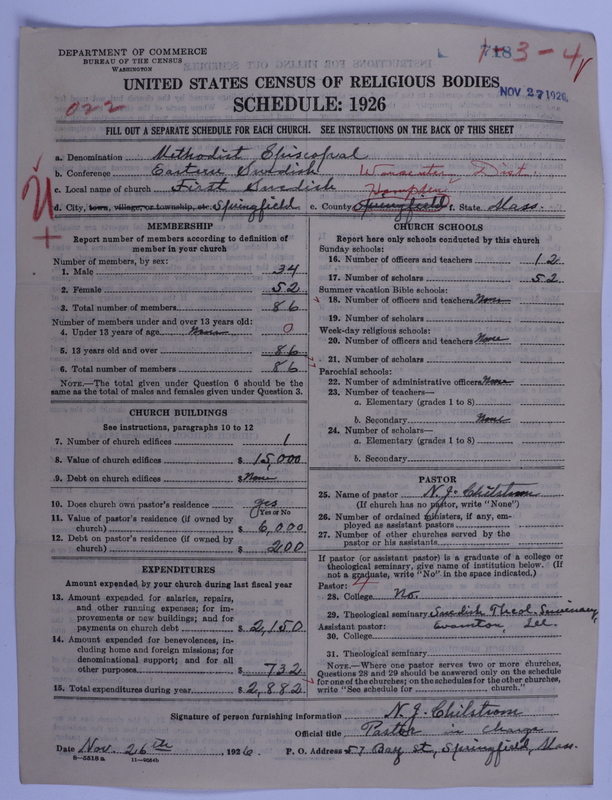 DEPARTMENT OF COMMERCE
BUREAU OF THE CENSUS
WASHINGTON
7183-4
UNITED STATES CENSUS OF RELIGIOUS BODIES
NOV 27 1926
022
SCHEDULE: 1926
FILL OUT A SEPARATE SCHEDULE FOR EACH CHURCH. SEE INSTRUCTIONS ON THE BACK OF THIS SHEET
a. Denomination Methodist Episcopal
b. Conference Eastern Swedish Worcester Dist.
c. Local name of church First Swedish Hampden
d. City, town, village, or township, etc. Springfield e. County Springfield f. State Mass.
MEMBERSHIP
Report number of members according to definition of
member in your church
Number of members, by sex:
1. Male 34
2. Female 52
3. Total number of members 86
Number of members under and over 13 years old:
4. Under 13 years of age None 0
5. 13 years old and over 86
6. Total number of members 86
NOTE.—The total given under Question 6 should be the
same as the total of males and females given under Question 3.
CHURCH BUILDINGS
See instructions, paragraphs 10 to 12
7. Number of church edifices 1
8. Value of church edifices $ 15,000
9. Debt on church edifices $ None
10. Does church own pastor's residence yes
(Yes or No)
11. Value of pastor's residence (if owned by
church) $ 6,000
12. Debt on pastor's residence (if owned by
church) $ 200
EXPENDITURES
Amount expended by your church during last fiscal year
13. Amount expended for salaries, repairs,
and other running expenses; for im-
provements or new buildings; and for
payments on church debt $ 2,150
14. Amount expended for benevolences, in-
cluding home and foreign missions; for
denominational support; and for all
other purposes $ 732
15. Total expenditures during year $ 2,882
CHURCH SCHOOLS
Report here only schools conducted by this church
Sunday schools:
16. Number of officers and teachers 12
17. Number of scholars 52
Summer vacation Bible schools:
18. Number of officers and teachers None
19. Number of scholars
Week-day religious schools:
20. Number of officers and teachers None
21. Number of scholars
Parochial schools:
22. Number of administrative officers None
23. Number of teachers—
a. Elementary (grades 1 to 8)
b. Secondary None
24. Number of scholars—
a. Elementary (grades 1 to 8)
b. Secondary
PASTOR
25. Name of pastor N. J. Chilstrom
(If church has no pastor, write "None")
26. Number of ordained ministers, if any, em-
ployed as assistant pastors
27. Number of other churches served by the
pastor or his assistants
If pastor (or assistant pastor) is a graduate of a college or
theological seminary, give name of institution below. (If
not a graduate, write "No" in the space indicated.)
Pastor: 4
28. College No.
29. Theological seminary Swedish Theol. Seminary,
Assistant pastor: Evanston, Ill.
30. College
31. Theological seminary
NOTE.—Where one pastor serves two or more churches,
Questions 28 and 29 should be answered only on the schedule
for one of the churches; on the schedules for the other churches,
write "See schedule for church."
Signature of person furnishing information N. J. Chilstrom
Official title Pastor in charge
Date Nov. 26th, 1926 P. O. Address 57 Bay St, Springfield, Mass.
8-5518a 11-9024b